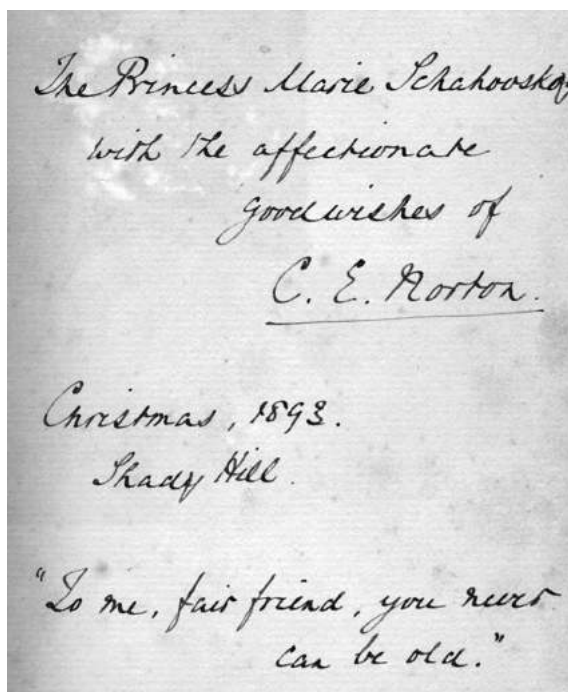 The Princess Marie Schahovskoy
with the affectionate
good wishes of
C. E. Norton.
Christmas, 1893.
Shady Hill.
"To me, fair friend, you never
can be old."